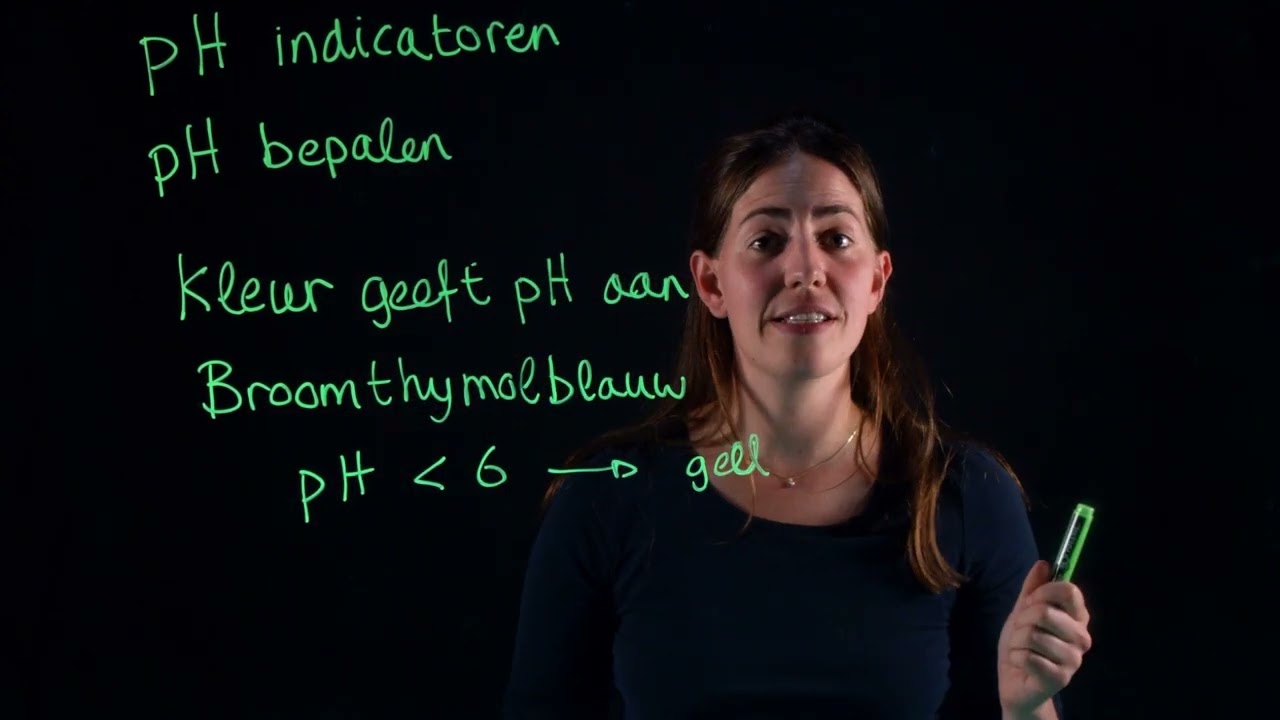 pH indicatoren
pH bepalen
Kleur geeft pH aan
Broomthymolblauw
pH < 6 → geel